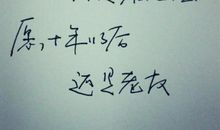 愿,十年以后
还是老友